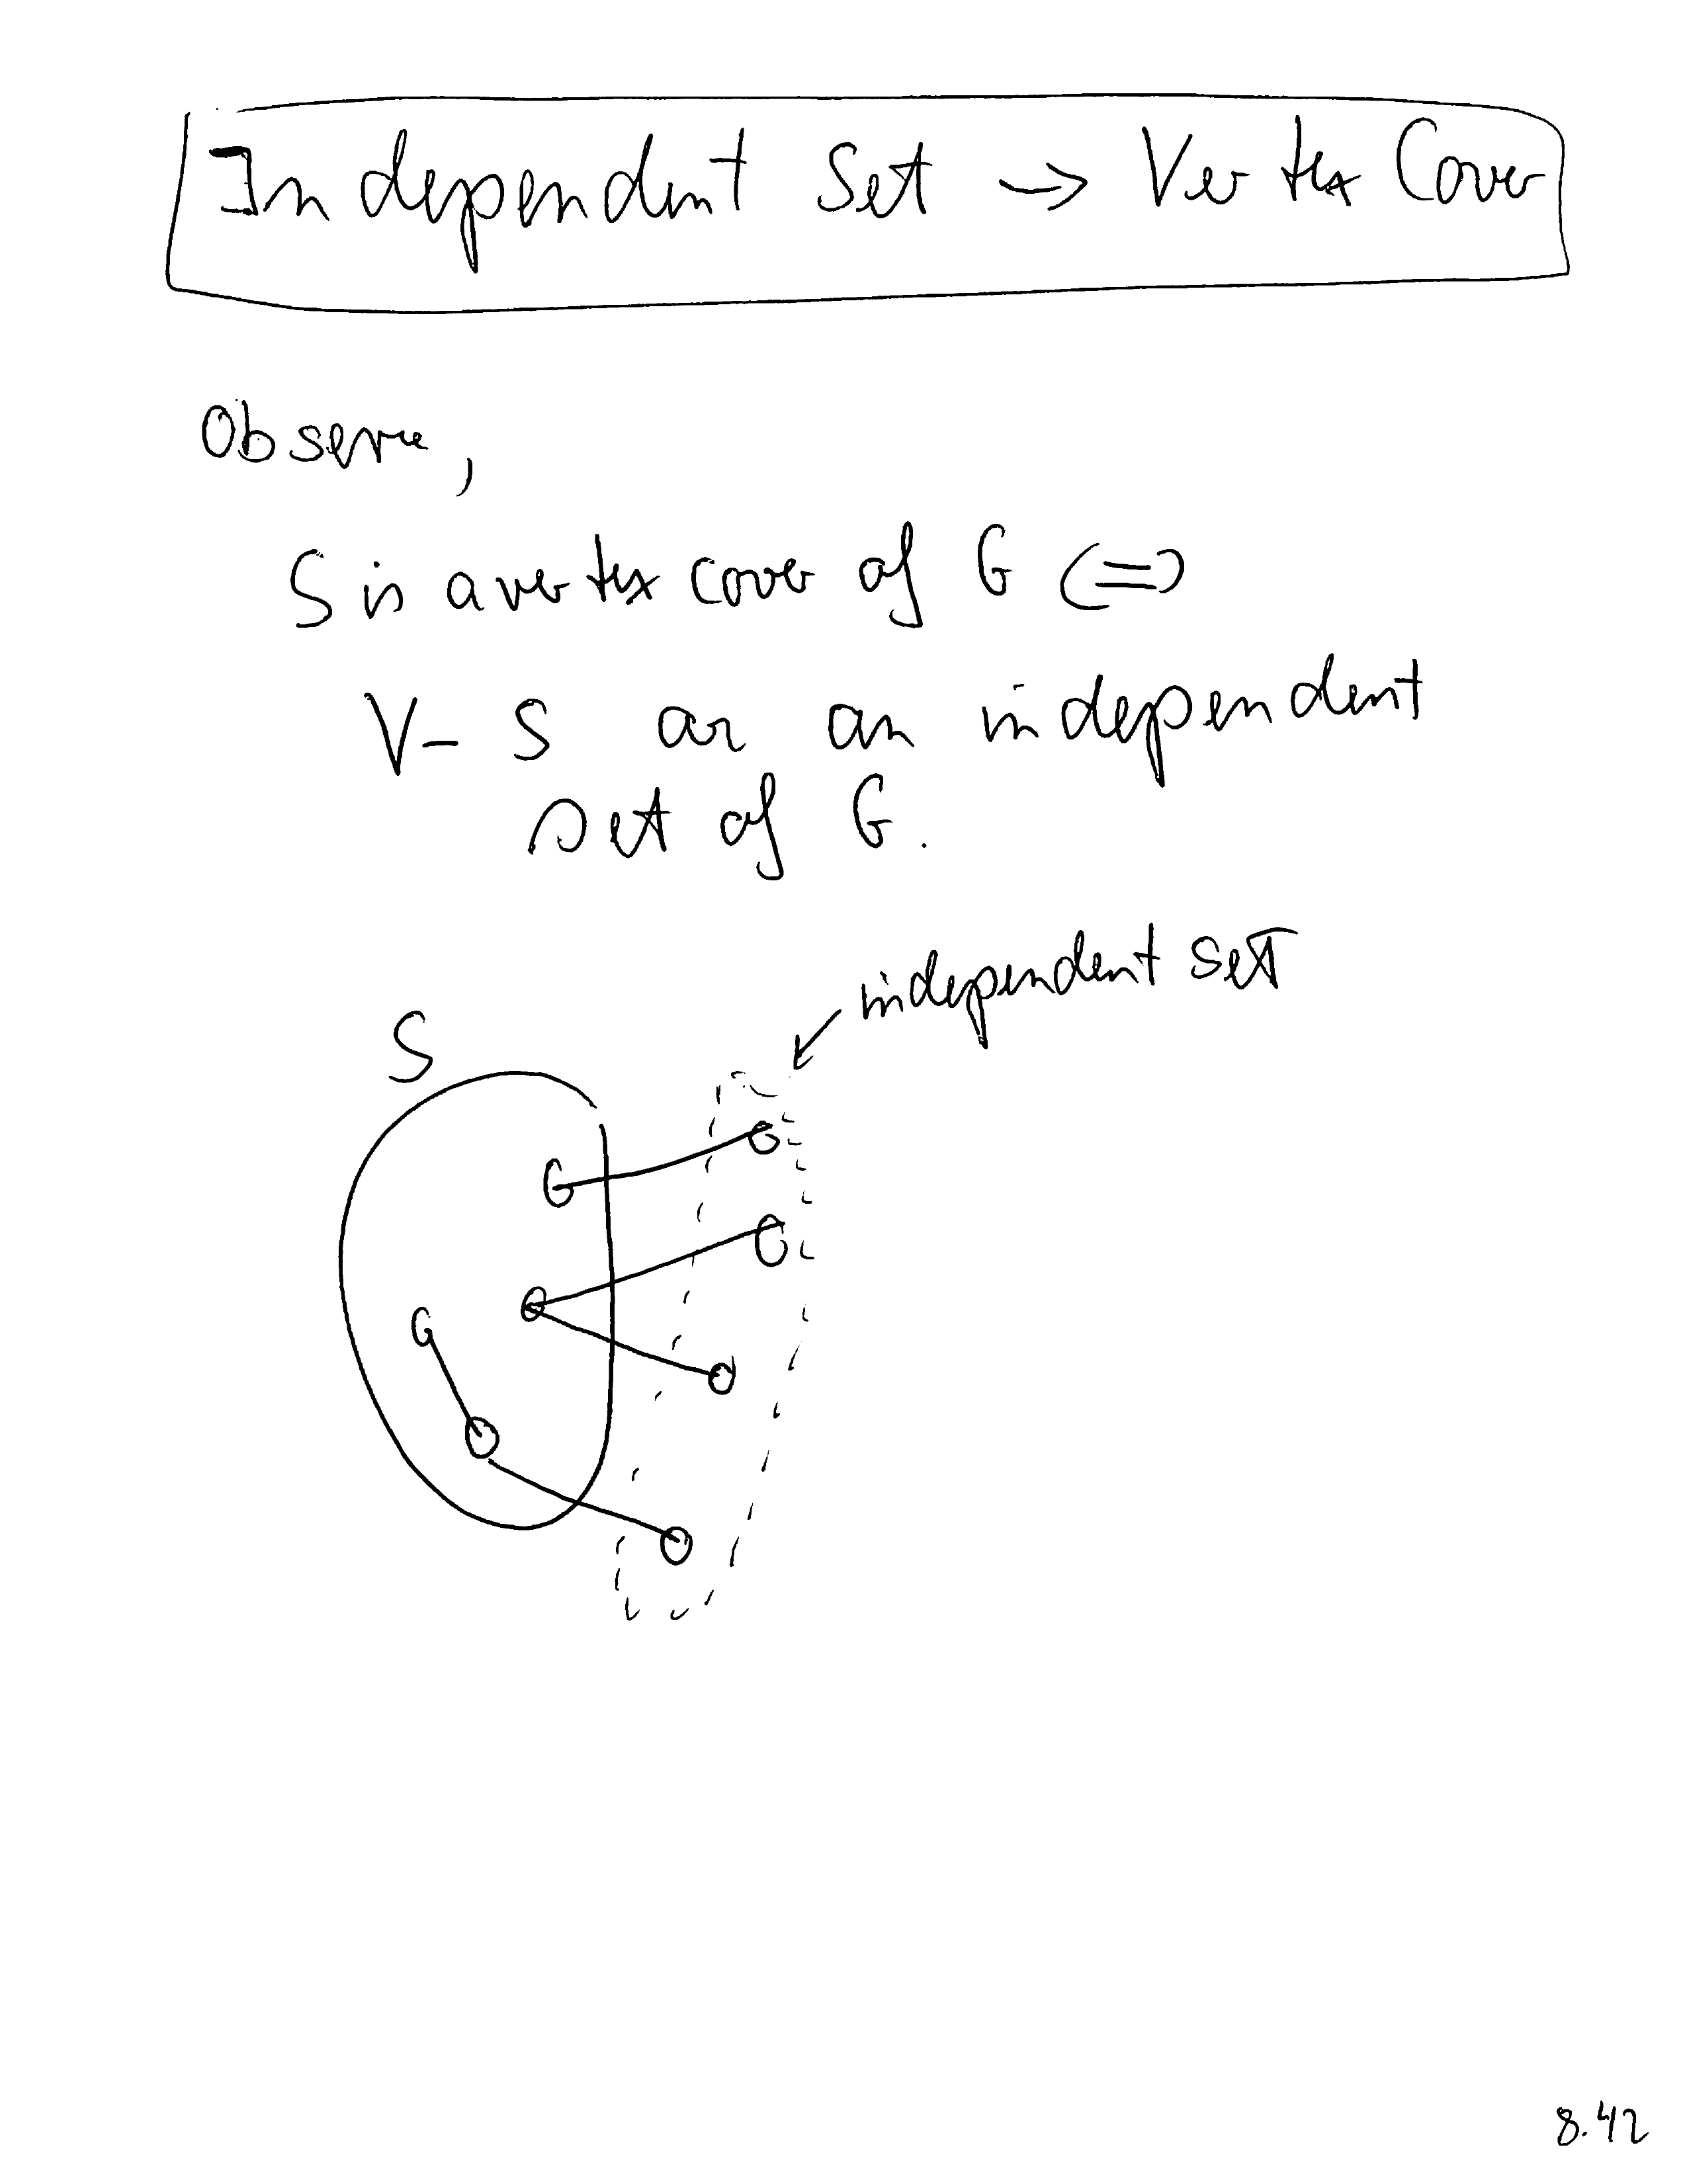 Independent Set → Vertex Cover
Observe,
S is a vertex cover of G <=>
V - S are an independent
set of G.
independent set
S
8.42